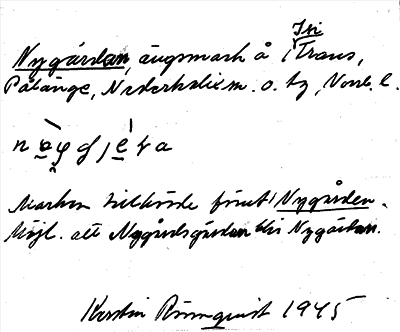 Isi
Nygårdan, ängsmark å Trans,
Påtänge, Nederkalix m. o. tg, Norrb. l.
Marken tillhörde förut Nygården.
Möjl. att Nygårdsgårdan blir Nygårdan.
Kerstin Rönnquist 1945